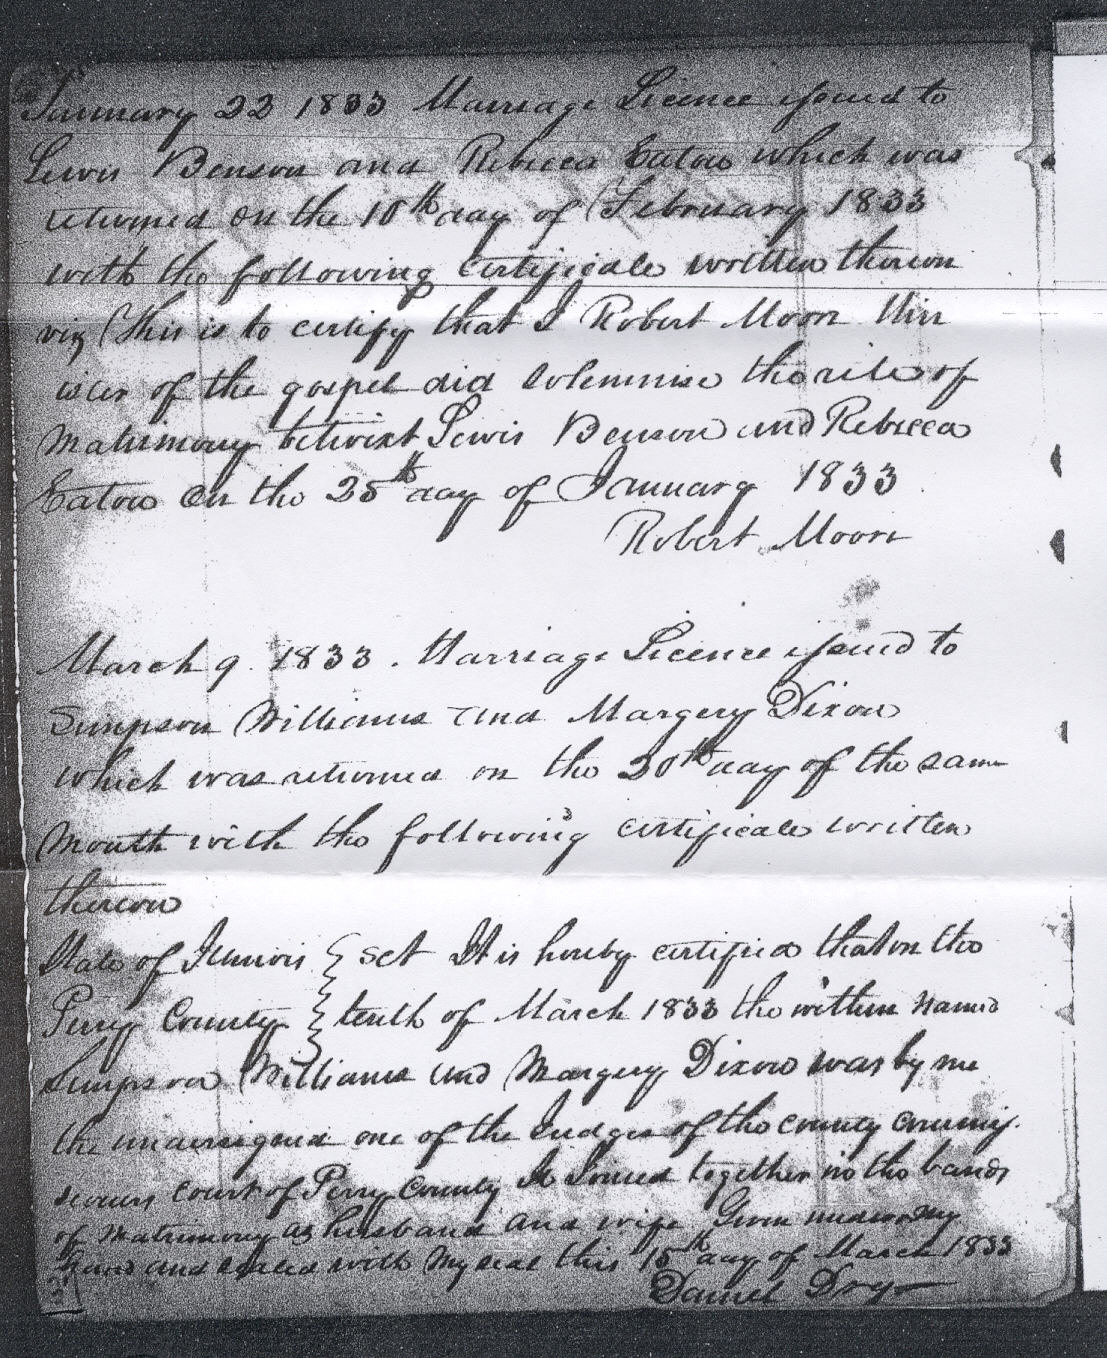 January 22 1833 Marriage Licence issued to
Lewis Benson and Rebecca Eaton which was
returned on the 10th day of February 1833
with the following certificate written thereon
viz (This is to certify that I Robert Moore Min
ister of the gospel did solemnise the rite of
Matrimony betwixt Lewis Benson and Rebecca
Eaton on the 25th day of January 1833
Robert Moore
March 9 1833. Marriage Licence issued to
Simpson Williams and Margery Dixon
which was returned on the 30th day of the same
Month with the following certificate written
thereon
State of Illinois } sct It is hereby certified that on the
Perry County } tenth of March 1833 the within named
Simpson Williams and Margery Dixon was by me
the undersigned one of the Judges of the county commis
sioners court of Perry County Joined together in the bands
of Matrimony as husband and wife Given under my
hand and sealed with My seal this 15th day of March 1833
Daniel Dry